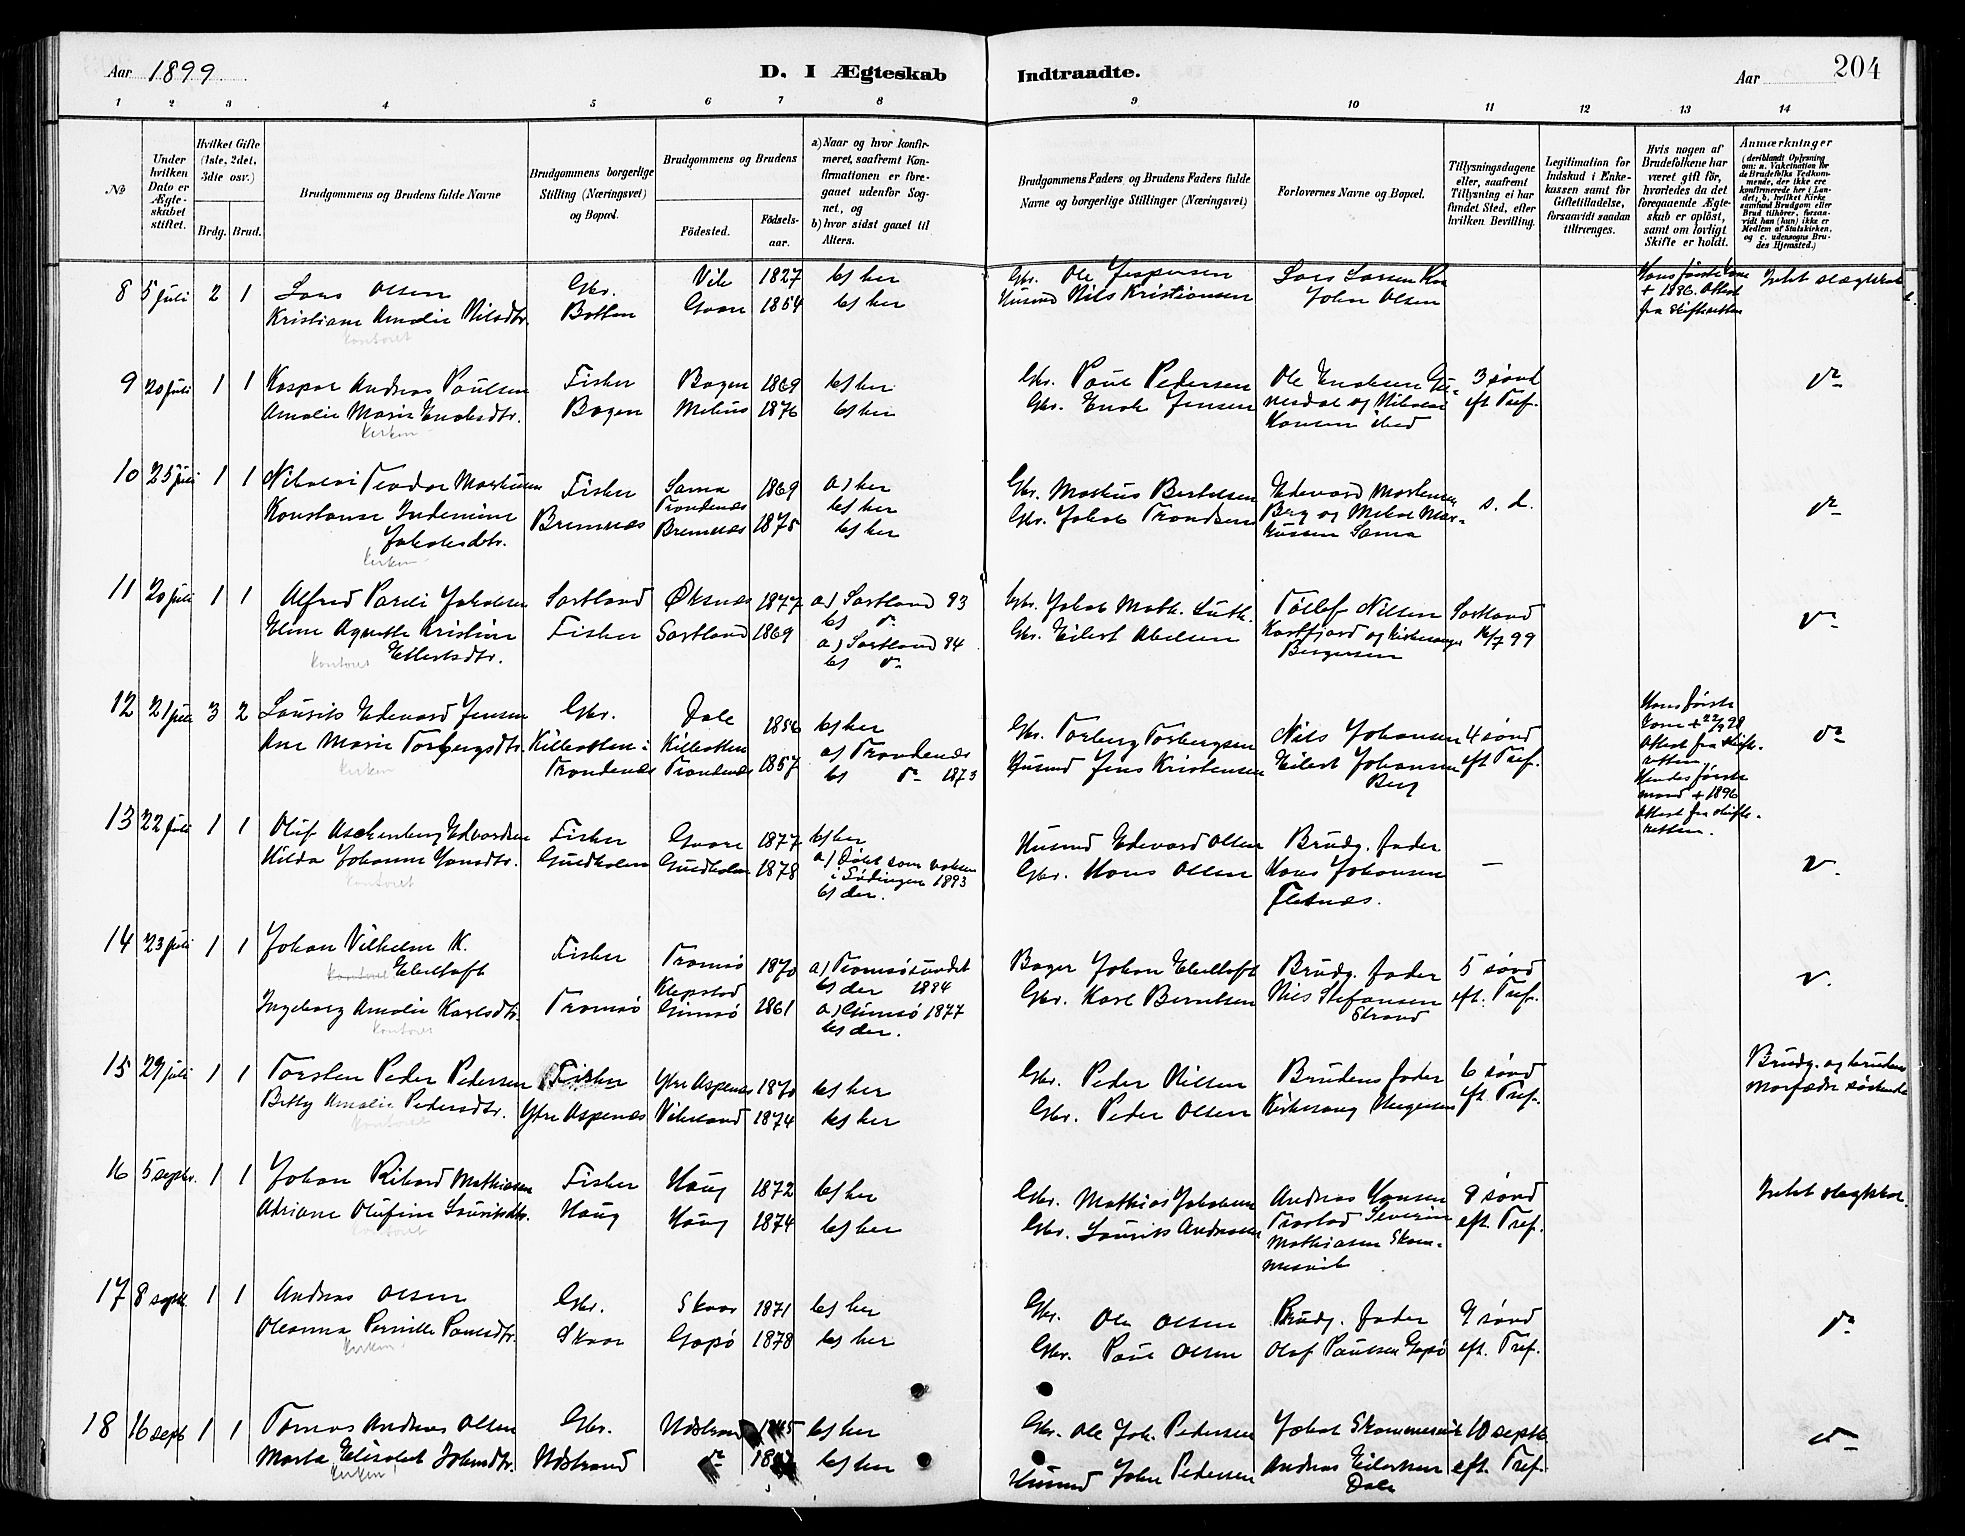 Aar 1899.
D. I Ægteskab Indtraadte.
Aar 204
1 2 3 4 5 6 7 8 9 10 11 12 13 14
No
Under hvilken Dato er Ægteskabet stiftet.
Hvilket Gifte (1ste, 2det, 3die osv.)
Brdg. Brud.
Brudgommens og Brudens fulde Navne
Brudgommens borgerlige Stilling (Næringsvei) og Bopæl.
Brudgommens og Brudens
Fødested. Fødselsaar.
a) Naar og hvor konfirmeret, saafremt Konfirmationen er foregaaet udenfor Sognet, og
b) hvor sidst gaaet til Alters.
Brudgommens Faders og Brudens Faders fulde Navne og borgerlige Stillinger (Næringsvei)
Forlovernes Navne og Bopæl.
Tillysningsdagene eller, saafremt Tillysning ei har fundet Sted, efter hvilken Bevilling.
Legitimation for Indskud i Enkekassen samt for Giftetilladelse, forsaavidt saadan tiltrænges.
Hvis nogen af Brudefolkene har været gift før, hvorledes da det foregaaende Ægteskab er opløst, samt om lovligt Skifte er holdt.
Anmærkninger (deriblandt Oplysning om: a. Vakcination for de Brudefolks Vedkommende, der ikke ere konfirmerede her i Landet; b. hvilket Kirkesamfund Brudgom eller Brud tilhører, forsaavidt han (hun) ikke er Medlem af Statskirken, og c. udensogns Brudes Hjemsted.)
8 5 juli 2 1 Lars Olsen Gbr. Vik 1827 b) her Gbr. Ole Jespersen
Kristiane Amalie Nilsdtr. Botten Gaare 1854 b) her Husmd Nils Kristiansen John Olsen
kontoret
Hans første kone + 1886. Attest fra skifteretten
9 20 juli 1 1 Kaspar Andreas Paulsen Fisker Bogen 1869 b) her Gbr. Paul Pedersen 3 sønd
Amalie Marie Enoksdtr. Bogen Melius 1876 b) her Gbr. Enok Jensen eft. Tref.
kirken
10 25 juli 1 1 Nikolai Teodor Markusen Fisker Sama Trondenæs 1869 a) her b) her Gbr. Markus Bertelsen Edevard Mortensen s. d.
Konstanse Indemine Jakobsdtr. Bremnæs Bremnæs 1875 b) her Gbr. Jakob Trondsen Berg og Mikal Markussen Sama
kirken
11 20 juli 1 1 Alfred Pareli Jakobsen Sortland Øksnæs 1877 a) Sortland 93 Gbr. Jakob Math. Luth. Tollef Nilsen Sortland
Eline Agnethe Kristine Eilertsdtr. Fisker Sortland 1869 a) Sortland 84 Gbr. Eilert Abelsen 16/7 99
kontoret
12 21 juli 3 2 Laurits Edevard Jensen Gbr. Dale 1856 b) her Gbr. Torberg Torbergsen Nils Johansen 4 sønd
Ane Marie Torbergsdtr. Kilbotten i Trondenæs Kilbotten Trondenæs 1857 a) Trondenæs 1873 Husmd Jens Kristensen Eilert Johansen Berg eft. Tref.
kirken
Hans første kone + 22/9 98 Attest fra skifteretten Hendes første mand + 1896 Attest fra skifteretten.
13 22 juli 1 1 Oluf Aschenberg Edvardsen Fisker Gaare 1877 b) her Husmd Edevard Olsen Brudg. fader
Hilda Johanne Hansdtr. Guldholm Guldholm 1878 a) Døbt som voksen i Lødingen 1893 b) der. Gbr. Hans Olsen Hans Johansen Fletnæs. —
kontoret
14 23 juli 1 1 Johan Vilhelm K. Ebeltoft Fisker Tromsø 1870 a) Tromsøsundet b) der 1884 Bager Johan Ebeltoft Brudg. fader 5 sønd
Ingeborg Amalie Karlsdtr. Tromsø Klepstad Gimsø 1861 a) Gimsø 1877 b) der. Gbr. Karl Berntsen Nils Stefansen Strand eft. Tref.
kontoret
15 29 juli 1 1 Torsten Peder Pedersen Fisker Ytre Aspenæs 1870 b) her Gbr. Peder Nilsen Brudens fader 6 sønd
Betty Amalie Pedersdtr. Ytre Aspenæs Vikeland 1874 b) her Gbr. Peder Olsen eft. Tref.
kontoret
Brudg. og brudens morfædre søskende
16 5 septr. 1 1 Johan Rikard Mathiassen Fisker Haug 1872 b) her Gbr. Mathias Jakobsen Andreas Hansen 8 sønd
Adriane Olufine Lauritsdtr. Haug Haug 1874 b) her Gbr. Laurits Andreasen Trastad Severin Mathiasen Skommesvik eft. Tref.
kontoret
17 8 septr. 1 1 Andreas Olsen Gbr. Skaar 1871 b) her Gbr. Ole Olsen Brudg. fader 9 sønd
Oleanna Pernille Paulsdtr. Skaar Gapø 1878 b) her Gbr. Paul Olsen Olaf Paulsen Gapø eft. Tref.
kirken
18 16 sept 1 1 Tomas Andreas Olsen Gbr. Udstrand b) her Gbr. Ole Joh. Pedersen Jakob Skommesvik 10 septb.
Marta Elisabet Johnsdtr. Udstrand b) her Husmd John Pedersen Andreas Eilertsen Dale eft. Tref.
kirken